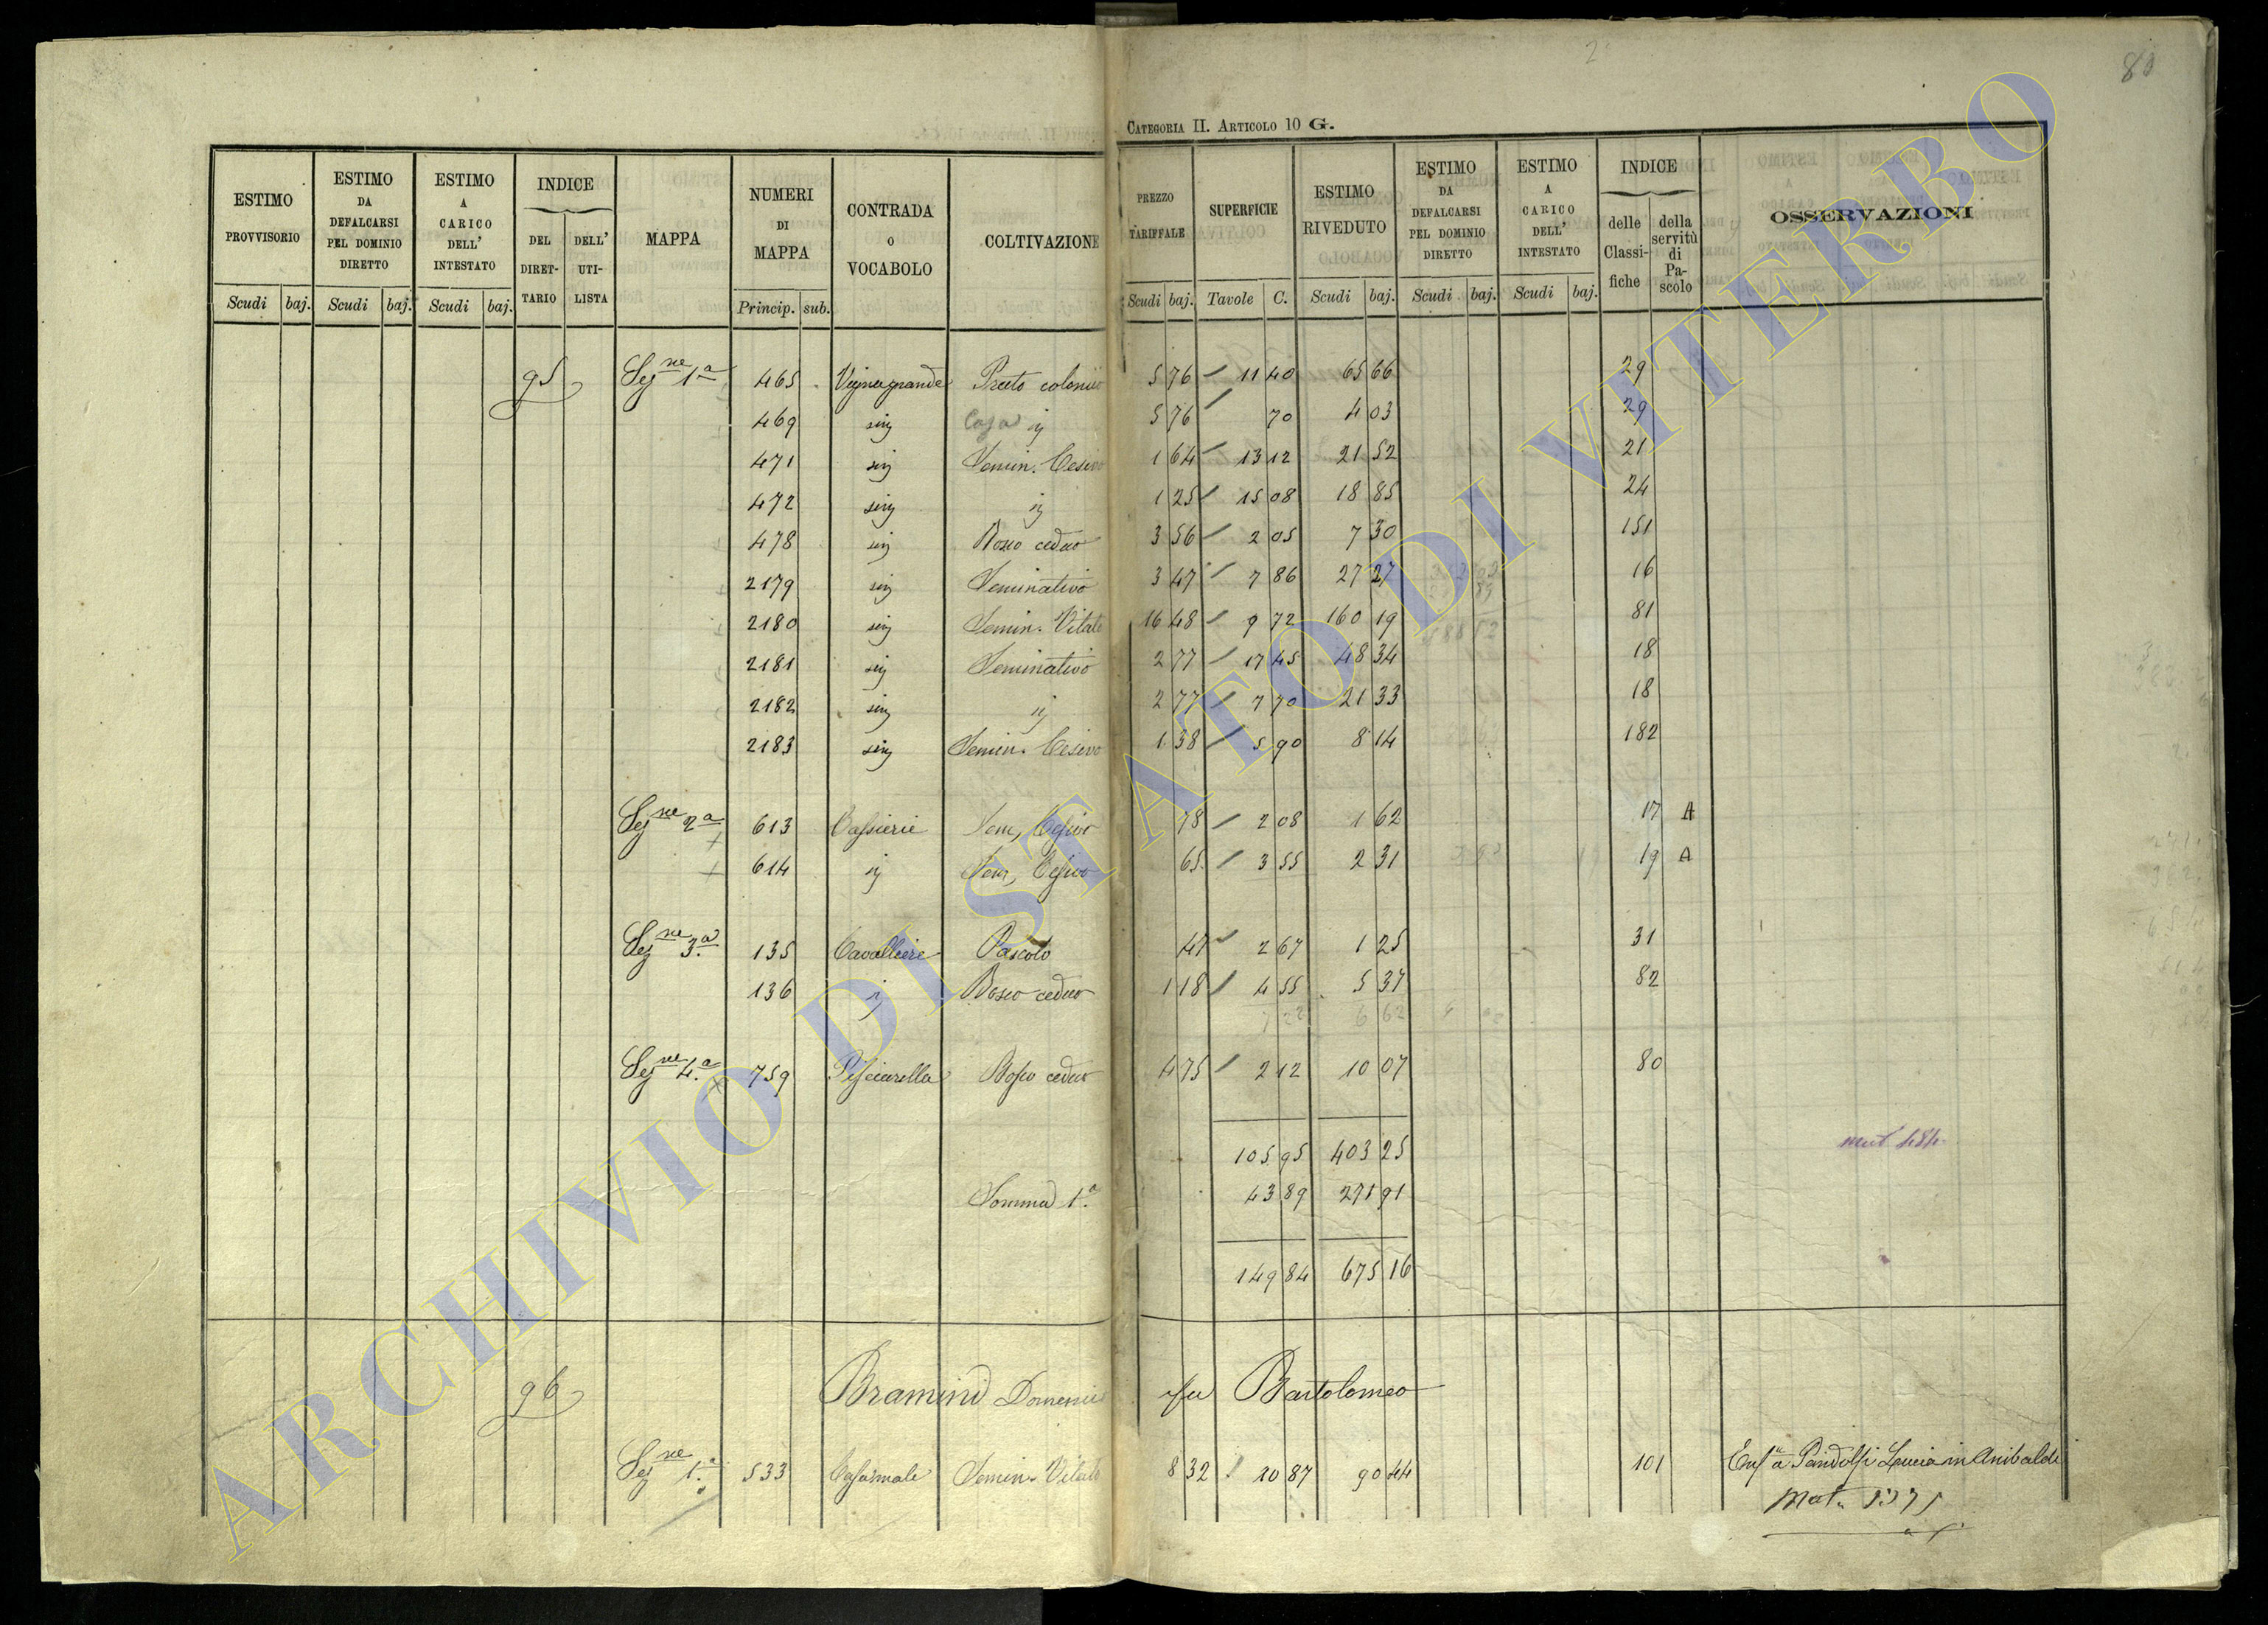 80
CATEGORIA II. ARTICOLO 10 G.
ESTIMO PROVVISORIO Scudi baj.
ESTIMO DA DEFALCARSI PEL DOMINIO DIRETTO Scudi baj.
ESTIMO A CARICO DELL' INTESTATO Scudi baj.
INDICE DEL DIRETTARIO DELL' UTILISTA
MAPPA
NUMERI DI MAPPA Princip. sub.
CONTRADA O VOCABOLO
COLTIVAZIONE
PREZZO TARIFFALE Scudi baj.
SUPERFICIE Tavole C.
ESTIMO RIVEDUTO Scudi baj.
ESTIMO DA DEFALCARSI PEL DOMINIO DIRETTO Scudi baj.
ESTIMO A CARICO DELL' INTESTATO Scudi baj.
INDICE delle Classifiche della servitù di Pascolo
OSSERVAZIONI
95 Sezne 1a 465 Vignagrande Prato 5 76 11 40 65 66 29
469 Casa 5 76 70 4 03 29
471 Semin. Cesivo 1 64 13 12 21 52 21
472 1 25 15 08 18 85 24
478 Bosco ceduo 3 56 2 05 7 30 151
2179 Seminativo 3 47 7 86 27 27 16
2180 Semin. Vitato 16 48 9 72 160 19 81
2181 Seminativo 2 77 17 45 48 34 18
2182 2 77 7 70 21 33 18
2183 Semin. Cesivo 1 38 5 90 8 14 182
Sezne 2a 613 Cassierie Sem, Cesivo 78 2 08 1 62 17 A
614 Sem, Cesivo 65 3 55 2 31 19 A
Sezne 3a 135 Cavalliere Pascolo 47 2 67 1 25 31
136 Bosco ceduo 1 18 4 55 5 37 82
6 62
Sezne 4a 759 Pisciarella Bosco ceduo 4 75 2 12 10 07 80
105 95 403 25
mut 484
Somma 1a 43 89 271 91
149 84 675 16
96 Bramini Domenico fu Bartolomeo
Sezne 1a 533 Casamale Semin. Vitato 8 32 10 87 90 44 101 Enfa Pandolfi Lucia in Anibaldi
Mat. 1371
ARCHIVIO DI STATO DI VITERBO